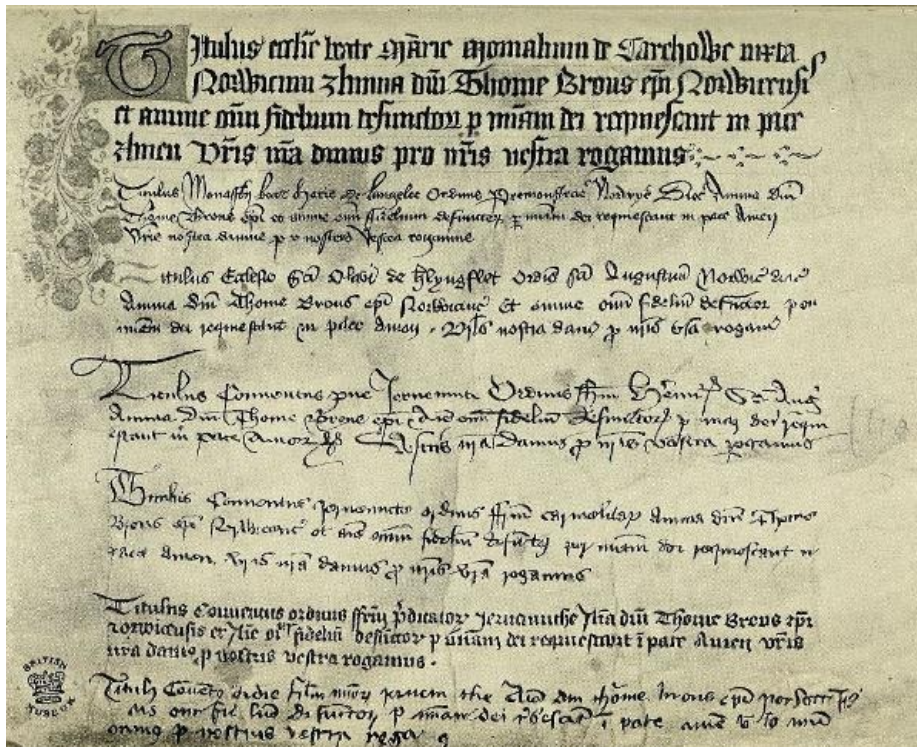 Titulus ecclie beate Marie monialium de Carehowe iuxta
Norwicum Anima dni Thome Brons epi Norwicensis
et anime oim fidelium defunctor p miam dei requiescant in pace
Amen Vris nra damus pro nris vestra rogamus
Titulus Monasterij beate Marie de Langelee Ordinis Premonstrac Norwyc Dioc Anima dni
Thome Brons epi et anime oim fidelium defunctor p miam dei requiescant in pace Amen
Vris nostra damus p nostris Vestra rogamus
Titulus Ecclesie Sci Olavi de Hlyngflet Ordis Sci Augustini Norwic dioc
Anima dni Thome Brons epi Norwicenc Et anime oim fidelium defunctor p
miam dei requiescant in pace Amen. Vris nostra dam p nris vra rogam
Titulus Conventus Jernemute Ordinis ffrm Heremit Sci Aug
Anima dni Thome Brons epi oim fidelium defunctor p dei requi
escant in pace Amen Vestris nra damus p nris vestra rogamus
Titulus Conventus Jernemute ordinis ffrm carmelitar Anima dni Thome
Brons epi Norwicenc et aie omium fidelium defunctor per miam dei requiescant in
pace amen. vris nra damus p nris vra rogamus
Titulus Conventus ordinis ffrm pdicator Jernemuthe Aia dni Thome Brons epi
norwicensis et Aie oi fidelium defunctor p miam dei requiescant i pace Amen vris
nra damus p nostris vestra rogamus.
Titulus Covent ordis frm mior dni thome brons epi
defunctor p miam dei i pace ame
p nostris vestra
BRITISH MUSEUM